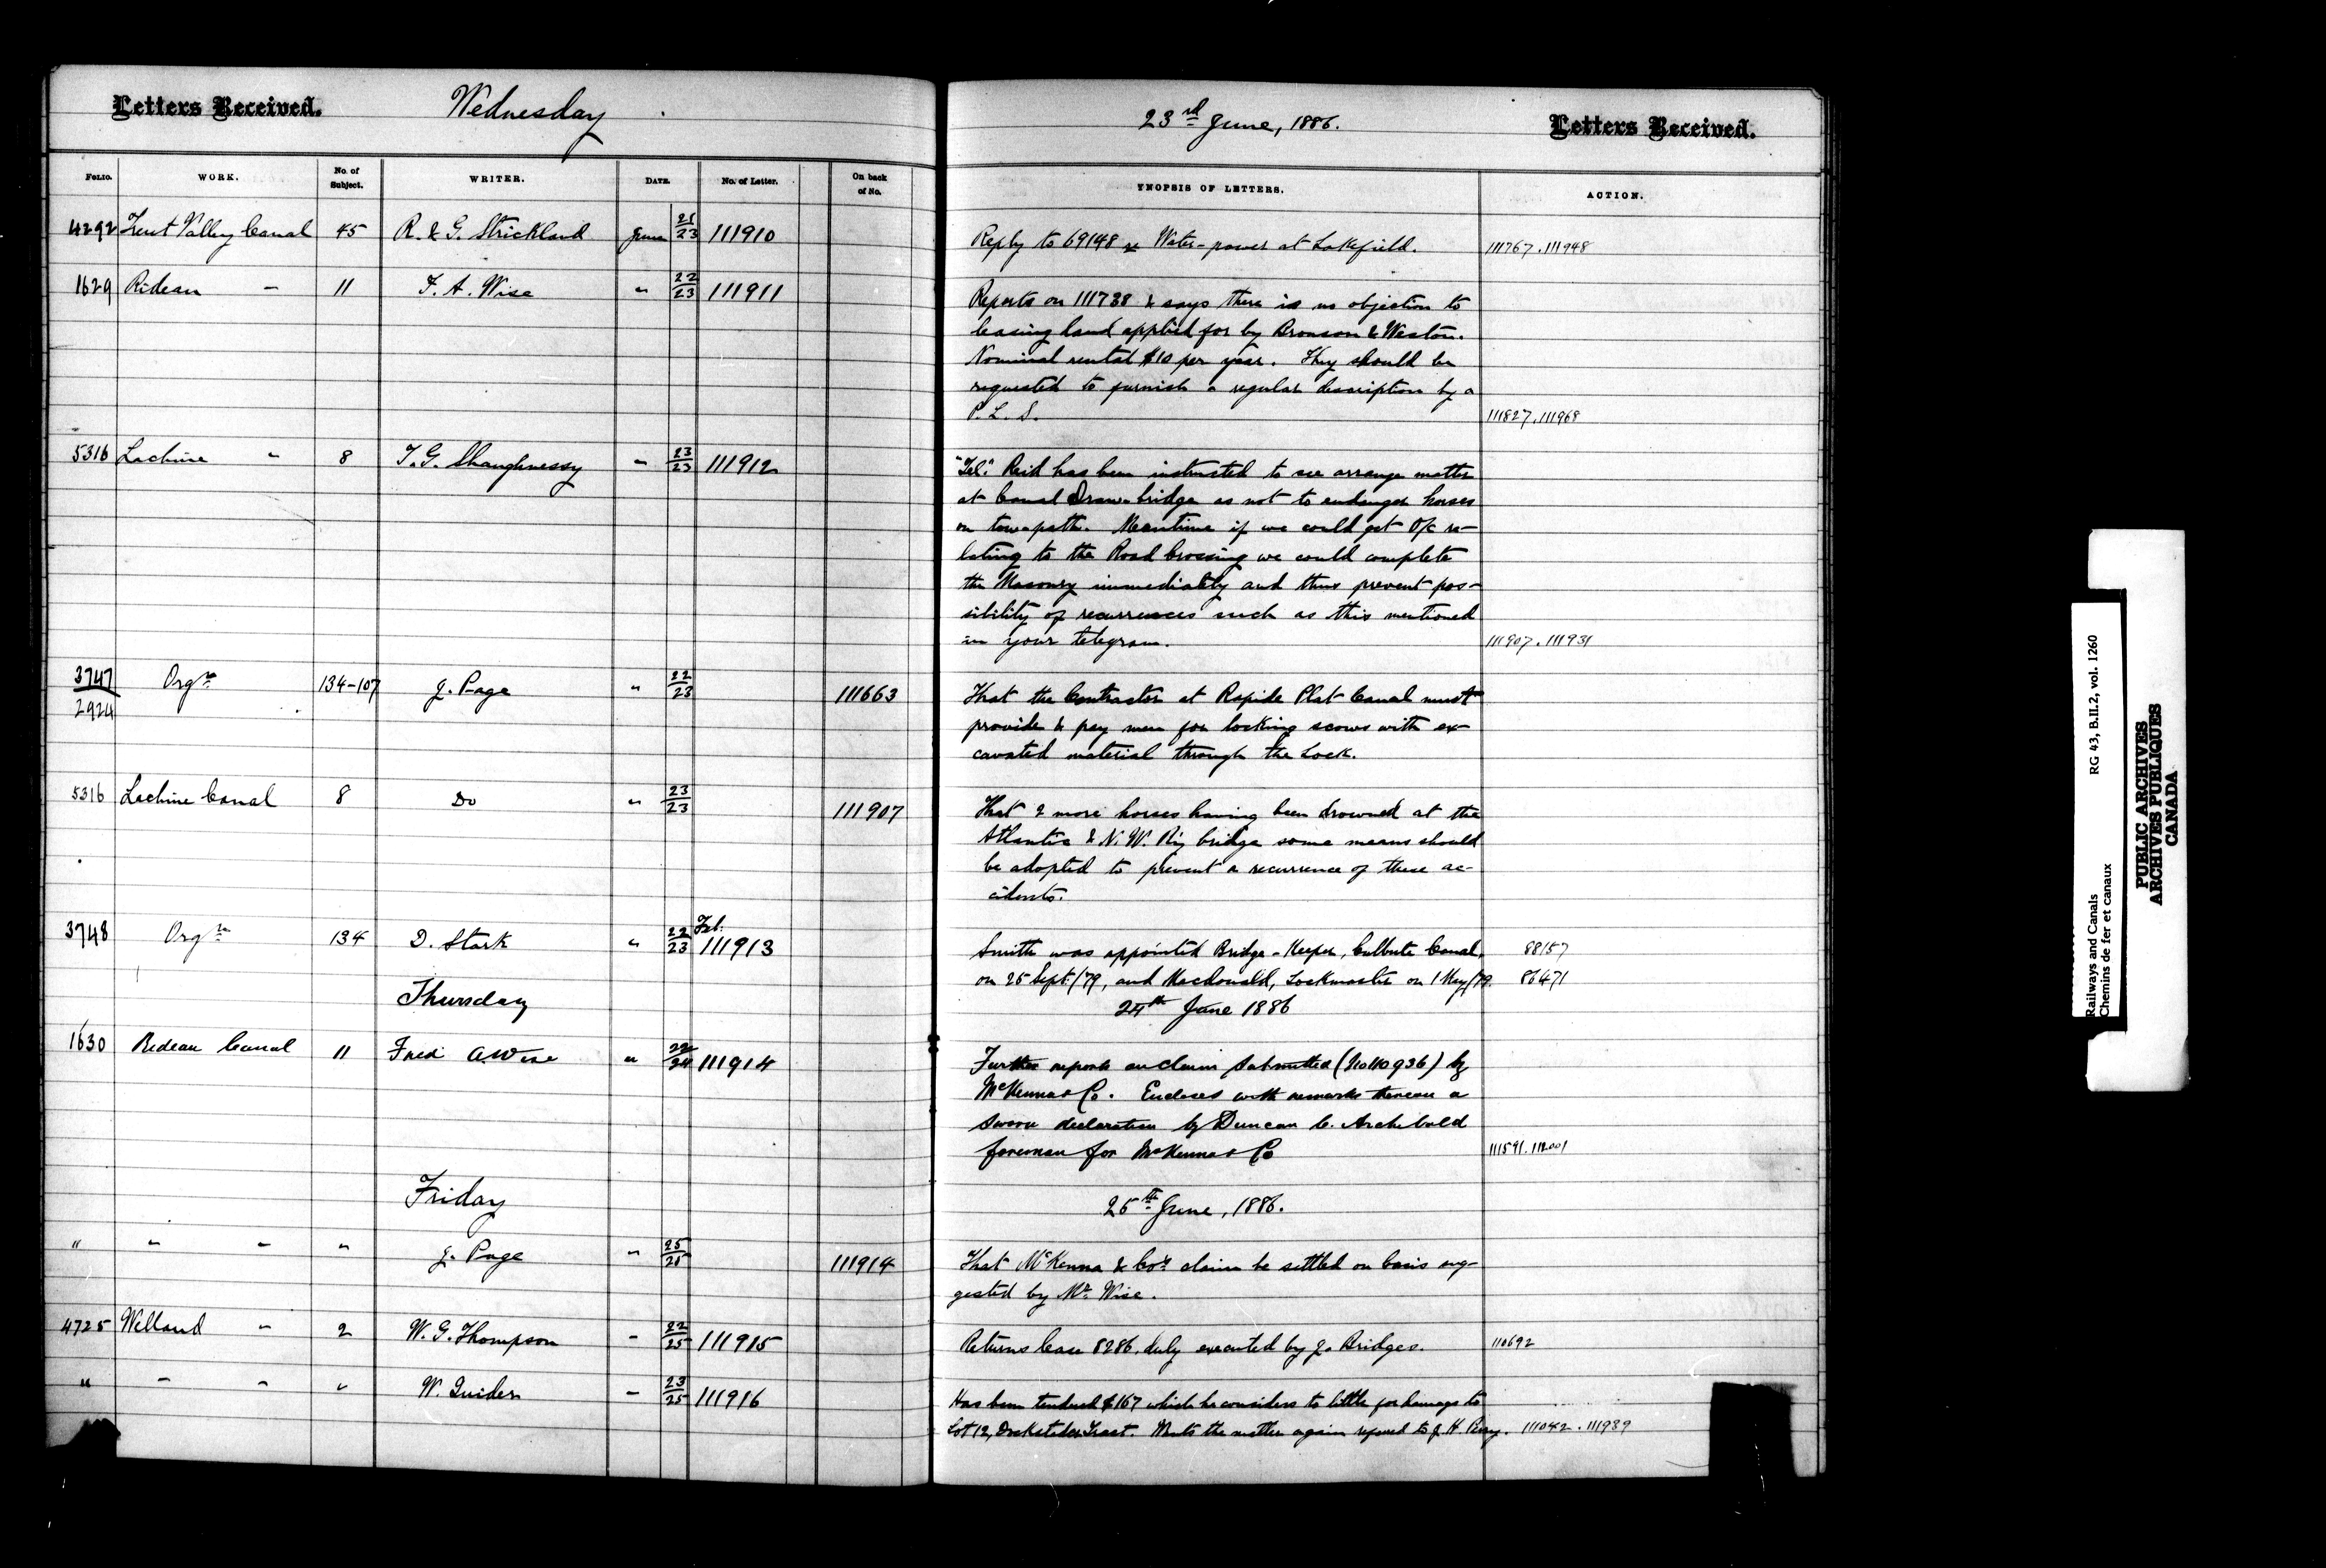 Letters Received. Wednesday 23rd June, 1886. Letters Received.
FOLIO. WORK. No. of Subject. WRITER. DATE. No. of Letter. On back of No. YNOPSIS OF LETTERS. ACTION.
4292 Trent Valley Canal 45 R. & G. Strickland June 21/23 111910 Reply to 69148 re Water-power at Lakefield. 111767.111948
1629 Rideau " 11 F. A. Wise " 22/23 111911 Reports on 111738 & says there is no objection to
leasing land applied for by Bronson & Weston.
Nominal rental $10 per year. They should be
requested to furnish a regular description by a
P. L. S. 111827.111968
5316 Lachine " 8 T. G. Shaughnessy " 23/23 111912 "Tel." Reid has been instructed to so arrange matter
at Canal Draw-bridge as not to endanger horses
on tow-path. Meantime if we could get O/c re-
lating to the Road Crossing we could complete
the Masonry immediately and thus prevent pos-
sibility of recurrences such as this mentioned
in your telegram. 111907.111931
3747/2924 Orgn 134-107 J. Page " 22/23 111663 That the Contractor at Rapide Plat Canal must
provide & pay men for locking scows with ex-
cavated material through the Lock.
5316 Lachine Canal 8 Do " 23/23 111907 That 2 more horses having been drowned at the
Atlantic & N. W. Ry bridge some means should
be adopted to prevent a recurrence of these ac-
cidents.
3748 Orgn 134 D. Stark " 22/23 Feb. 111913 Smith was appointed Bridge-Keeper, Culbute Canal, 88157
on 25 Sept./79, and Macdonald, Lockmaster on 1 May/79. 86471
Thursday 24th June 1886
1630 Rideau Canal 11 Fred A Wise " 22/24 111914 Further reports on claim submitted (No 110936) by
McKenna & Co. Encloses with remarks thereon a
sworn declaration by Duncan C. Archibald
foreman for McKenna & Co 111591.112001
Friday 25th June, 1886.
" " " " J. Page " 25/25 111914 That McKenna & Co's claim be settled on basis sug-
gested by Mr Wise.
4725 Welland " 2 W. G. Thompson " 22/25 111915 Returns lease 8286, duly executed by J. Bridges. 110692
" " " " W. Guider " 23/25 111916 Has been tendered $167 which he considers to little for damage to
Lot 12, Tract. Wants the matter again referred to J. H. 111042.111989
Railways and Canals RG 43, B.II.2, vol. 1260
Chemins de fer et canaux
PUBLIC ARCHIVES
ARCHIVES PUBLIQUES
CANADA